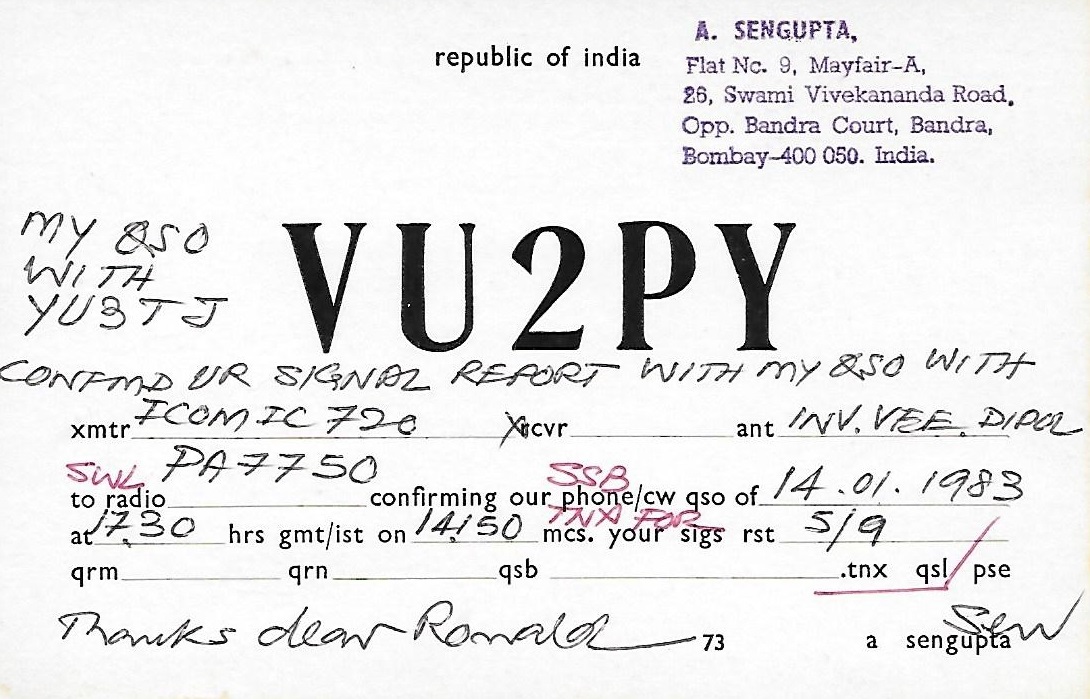 republic of india
A. SENGUPTA,
Flat No. 9, Mayfair-A,
26, Swami Vivekananda Road.
Opp. Bandra Court, Bandra,
Bombay-400 050. India.
MY QSO
WITH
YU3TJ
VU2PY
CONFMD UR SIGNAL REPORT WITH MY QSO WITH
xmtr ICOM IC 720 rcvr ant INV. VEE. DIPOL
SWL PA7750 SSB
to radio confirming our phone/cw qso of 14.01.1983
TNX FOR
at 17.30 hrs gmt/ist on 14.150 mcs. your sigs rst 5/9
qrm qrn qsb .tnx qsl/pse
Thanks dear Ronald 73 a sengupta
Sen